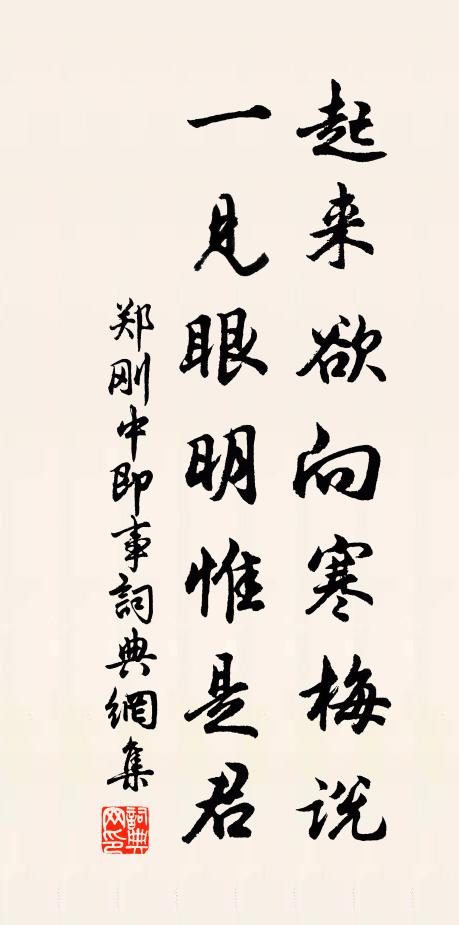 起来欲向寒梅说
一见眼明惟是君
郑刚中即事詞典網集
詞典网印